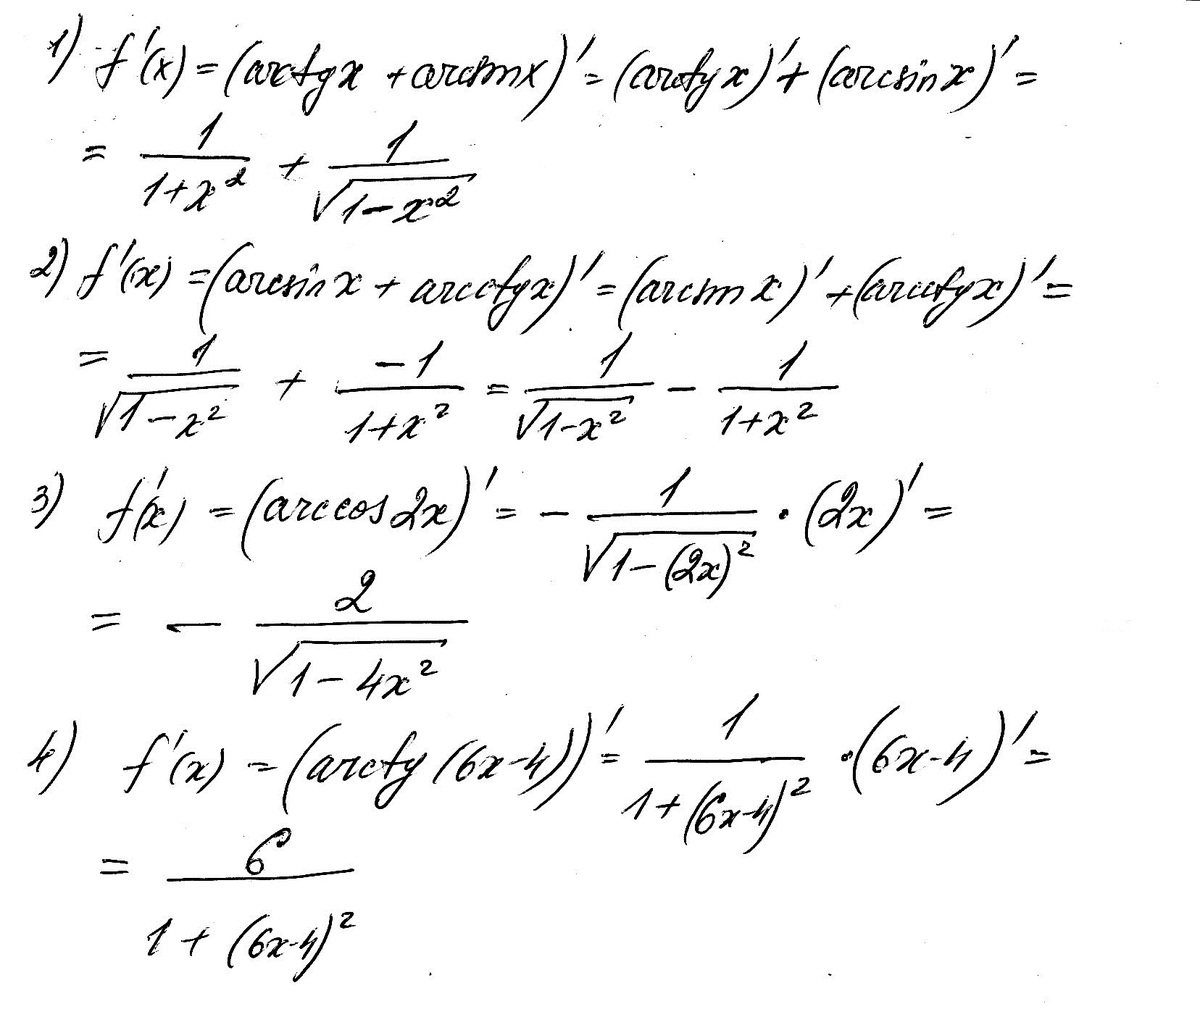 1) f'(x) = (arctg x + arcsin x)' = (arctg x)' + (arcsin x)' =
= \frac{1}{1+x^2} + \frac{1}{\sqrt{1-x^2}}
2) f'(x) = (arcsin x + arcctg x)' = (arcsin x)' + (arcctg x)' =
= \frac{1}{\sqrt{1-x^2}} + \frac{-1}{1+x^2} = \frac{1}{\sqrt{1-x^2}} - \frac{1}{1+x^2}
3) f'(x) = (arccos 2x)' = - \frac{1}{\sqrt{1-(2x)^2}} · (2x)' =
= - \frac{2}{\sqrt{1-4x^2}}
4) f'(x) = (arctg (6x-4))' = \frac{1}{1+(6x-4)^2} · (6x-4)' =
= \frac{6}{1+(6x-4)^2}